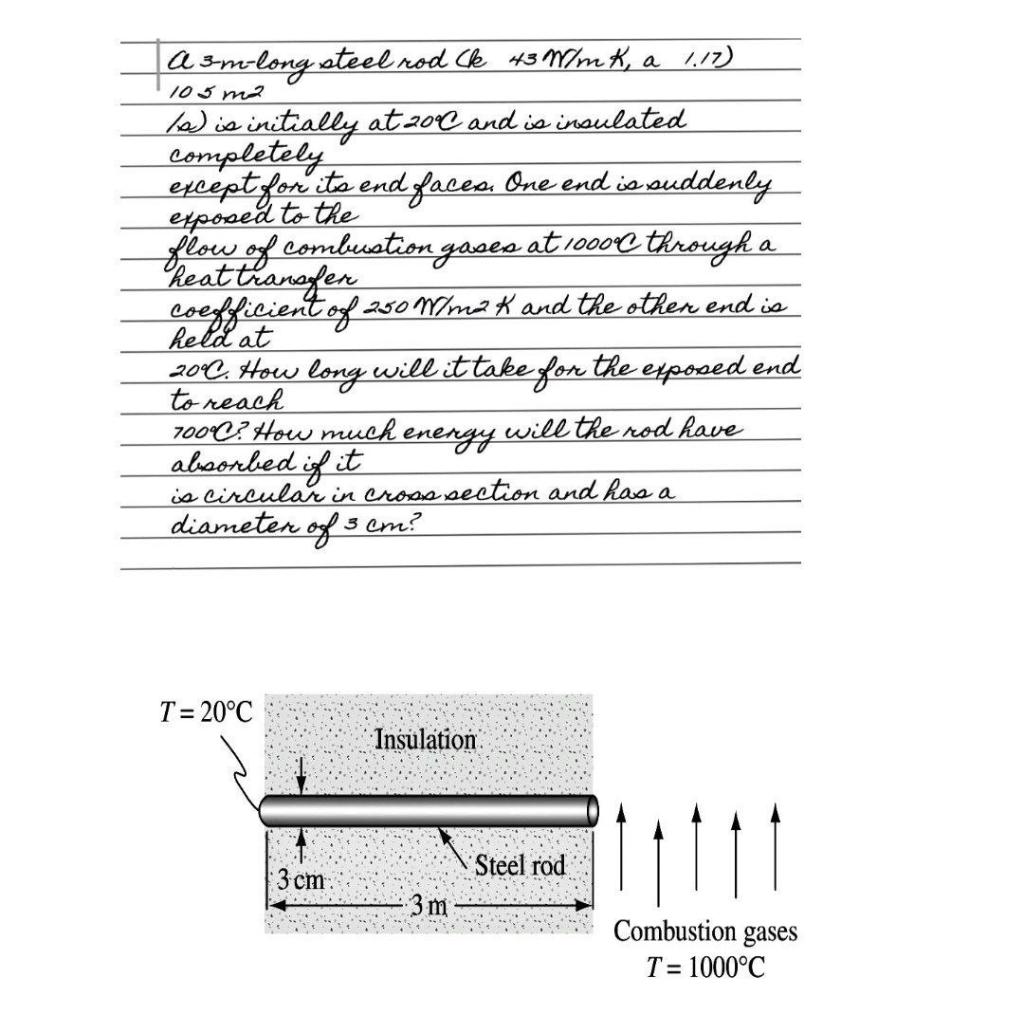 A 3-m-long steel rod (k 43 W/m K, a 1.17)
10 5 m2
/s) is initially at 20°C and is insulated
completely
except for its end faces. One end is suddenly
exposed to the
flow of combustion gases at 1000°C through a
heat transfer
coefficient of 250 W/m2 K and the other end is
held at
20°C. How long will it take for the exposed end
to reach
700°C? How much energy will the rod have
absorbed if it
is circular in cross section and has a
diameter of 3 cm?
T = 20°C
Insulation
Steel rod
3 cm
3 m
Combustion gases
T = 1000°C